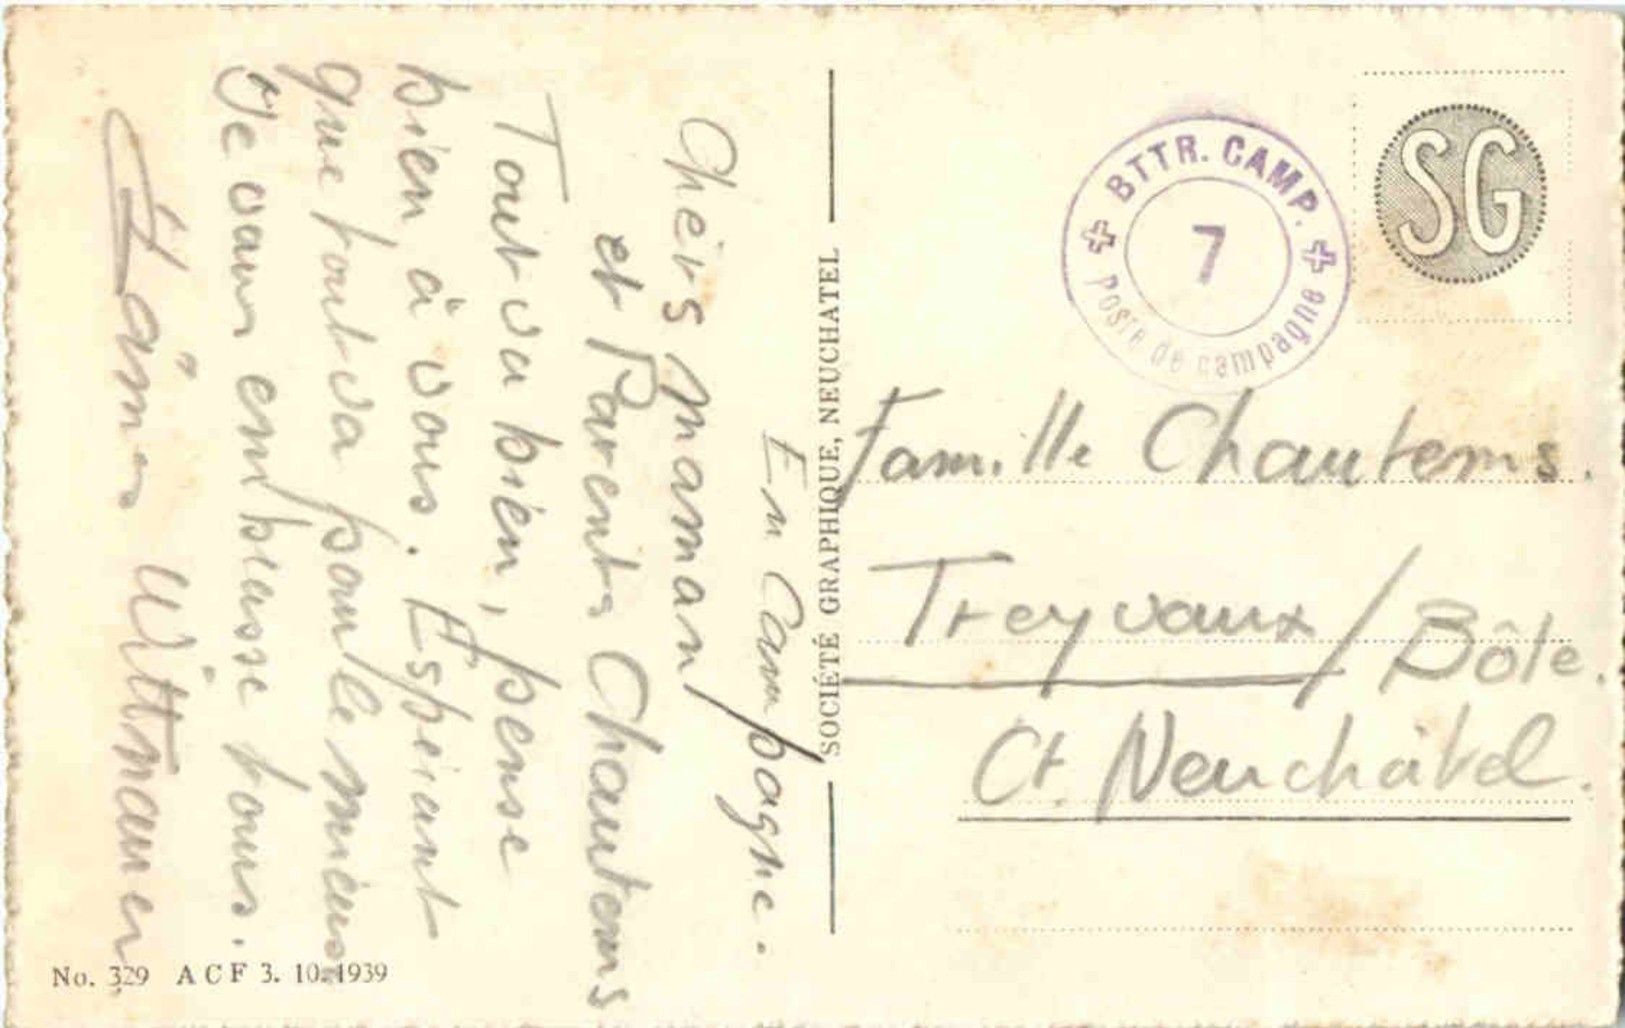 En Campagne.
Chèrs maman
et Parents Chautems
Tout va bien, pense
bien à vous. Espérant
que tout va pour le mieux
Je vous embrasse tous.
Wittmauer
SOCIÉTÉ GRAPHIQUE, NEUCHATEL
BTTR. CAMP.
7
Poste de campagne
SG
Famille Chautems.
Treyvaux/Bôle.
Ct. Neuchâtel.
No. 329 ACF 3. 10. 1939